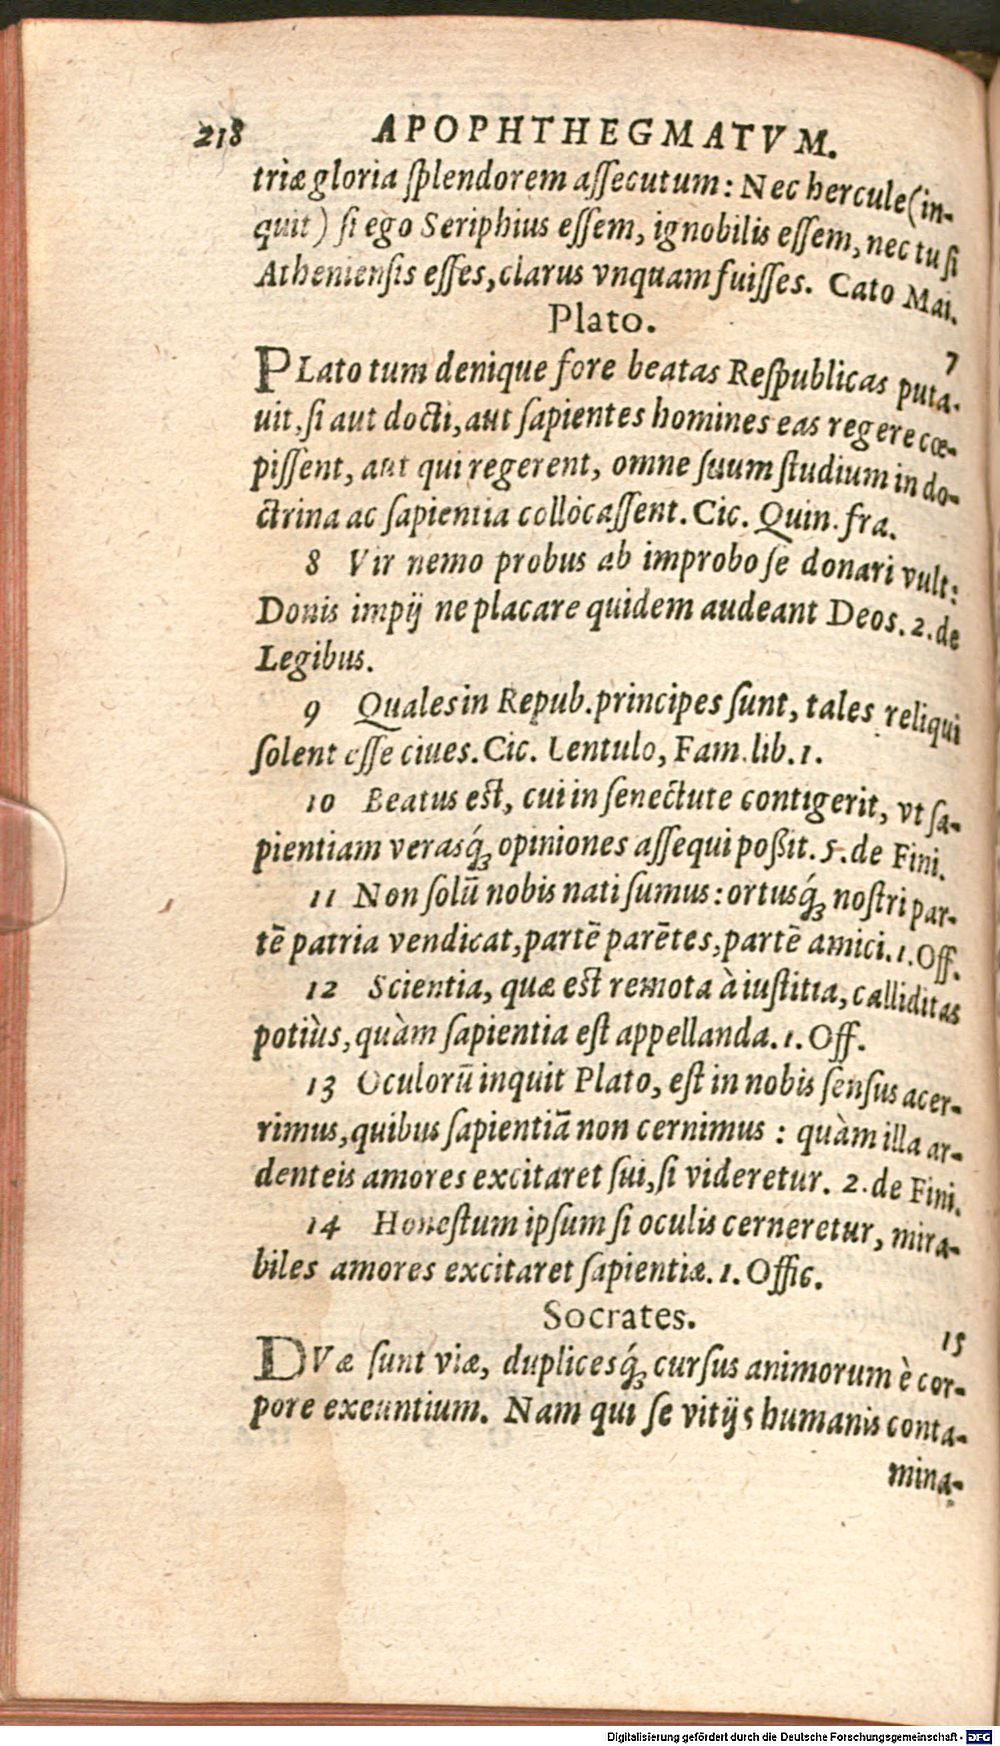 218 APOPHTHEGMATVM.
triæ gloria ſplendorem aſſecutum: Nec hercule (in-
quit) ſi ego Seriphius eſſem, ignobilis eſſem, nec tu ſi
Athenienſis eſſes, clarus vnquam fuiſſes. Cato Mai.
Plato.
7
PLato tum denique fore beatas Reſpublicas puta-
uit, ſi aut docti, aut ſapientes homines eas regere cœ-
piſſent, aut qui regerent, omne ſuum ſtudium in do-
ctrina ac ſapientia collocaſſent. Cic. Quin. fra.
8 Vir nemo probus ab improbo ſe donari vult:
Donis impij ne placare quidem audeant Deos. 2. de
Legibus.
9 Quales in Repub. principes ſunt, tales reliqui
ſolent eſſe ciues. Cic. Lentulo, Fam. lib. 1.
10 Beatus eſt, cui in ſenectute contigerit, vt ſa-
pientiam verasq́ꝫ opiniones aſſequi poßit. 5. de Fini.
11 Non ſolū nobis nati ſumus: ortusq́ꝫ noſtri par-
tē patria vendicat, partē parētes, partē amici. 1. Off.
12 Scientia, quæ eſt remota à iuſtitia, calliditas
potiùs, quàm ſapientia eſt appellanda. 1. Off.
13 Oculorū inquit Plato, eſt in nobis ſenſus acer-
rimus, quibus ſapientiā non cernimus : quàm illa ar-
denteis amores excitaret ſui, ſi videretur. 2. de Fini.
14 Honeſtum ipſum ſi oculis cerneretur, mira-
biles amores excitaret ſapientiæ. 1. Offic.
Socrates.
15
DVæ ſunt viæ, duplicesq́ꝫ curſus animorum è cor-
pore exeuntium. Nam qui ſe vitijs humanis conta-
mina-
Digitalisierung gefördert durch die Deutsche Forschungsgemeinschaft - DFG